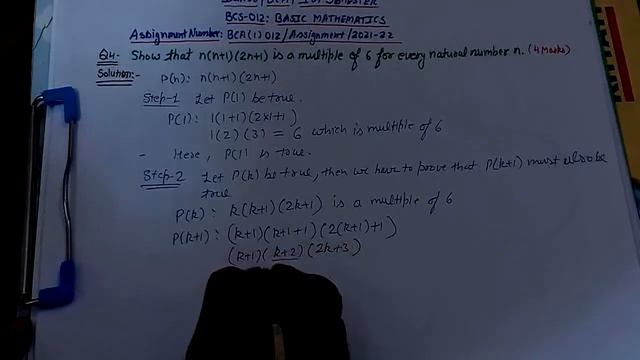 BCS-012: BASIC MATHEMATICS
Assignment Number: BCA(1)012/Assignment/2021-22
Q4- Show that n(n+1)(2n+1) is a multiple of 6 for every natural number n. (4 Marks)
Solution:- P(n): n(n+1)(2n+1)
Step-1 Let P(1) be true.
P(1): 1(1+1)(2×1+1)
1(2)(3) = 6 which is multiple of 6
- Here, P(1) is true.
Step-2 Let P(k) be true, then we have to prove that P(k+1) must also be
true
P(k): k(k+1)(2k+1) is a multiple of 6
P(k+1): (k+1)(k+1+1)(2(k+1)+1)
(k+1)(k+2)(2k+3)